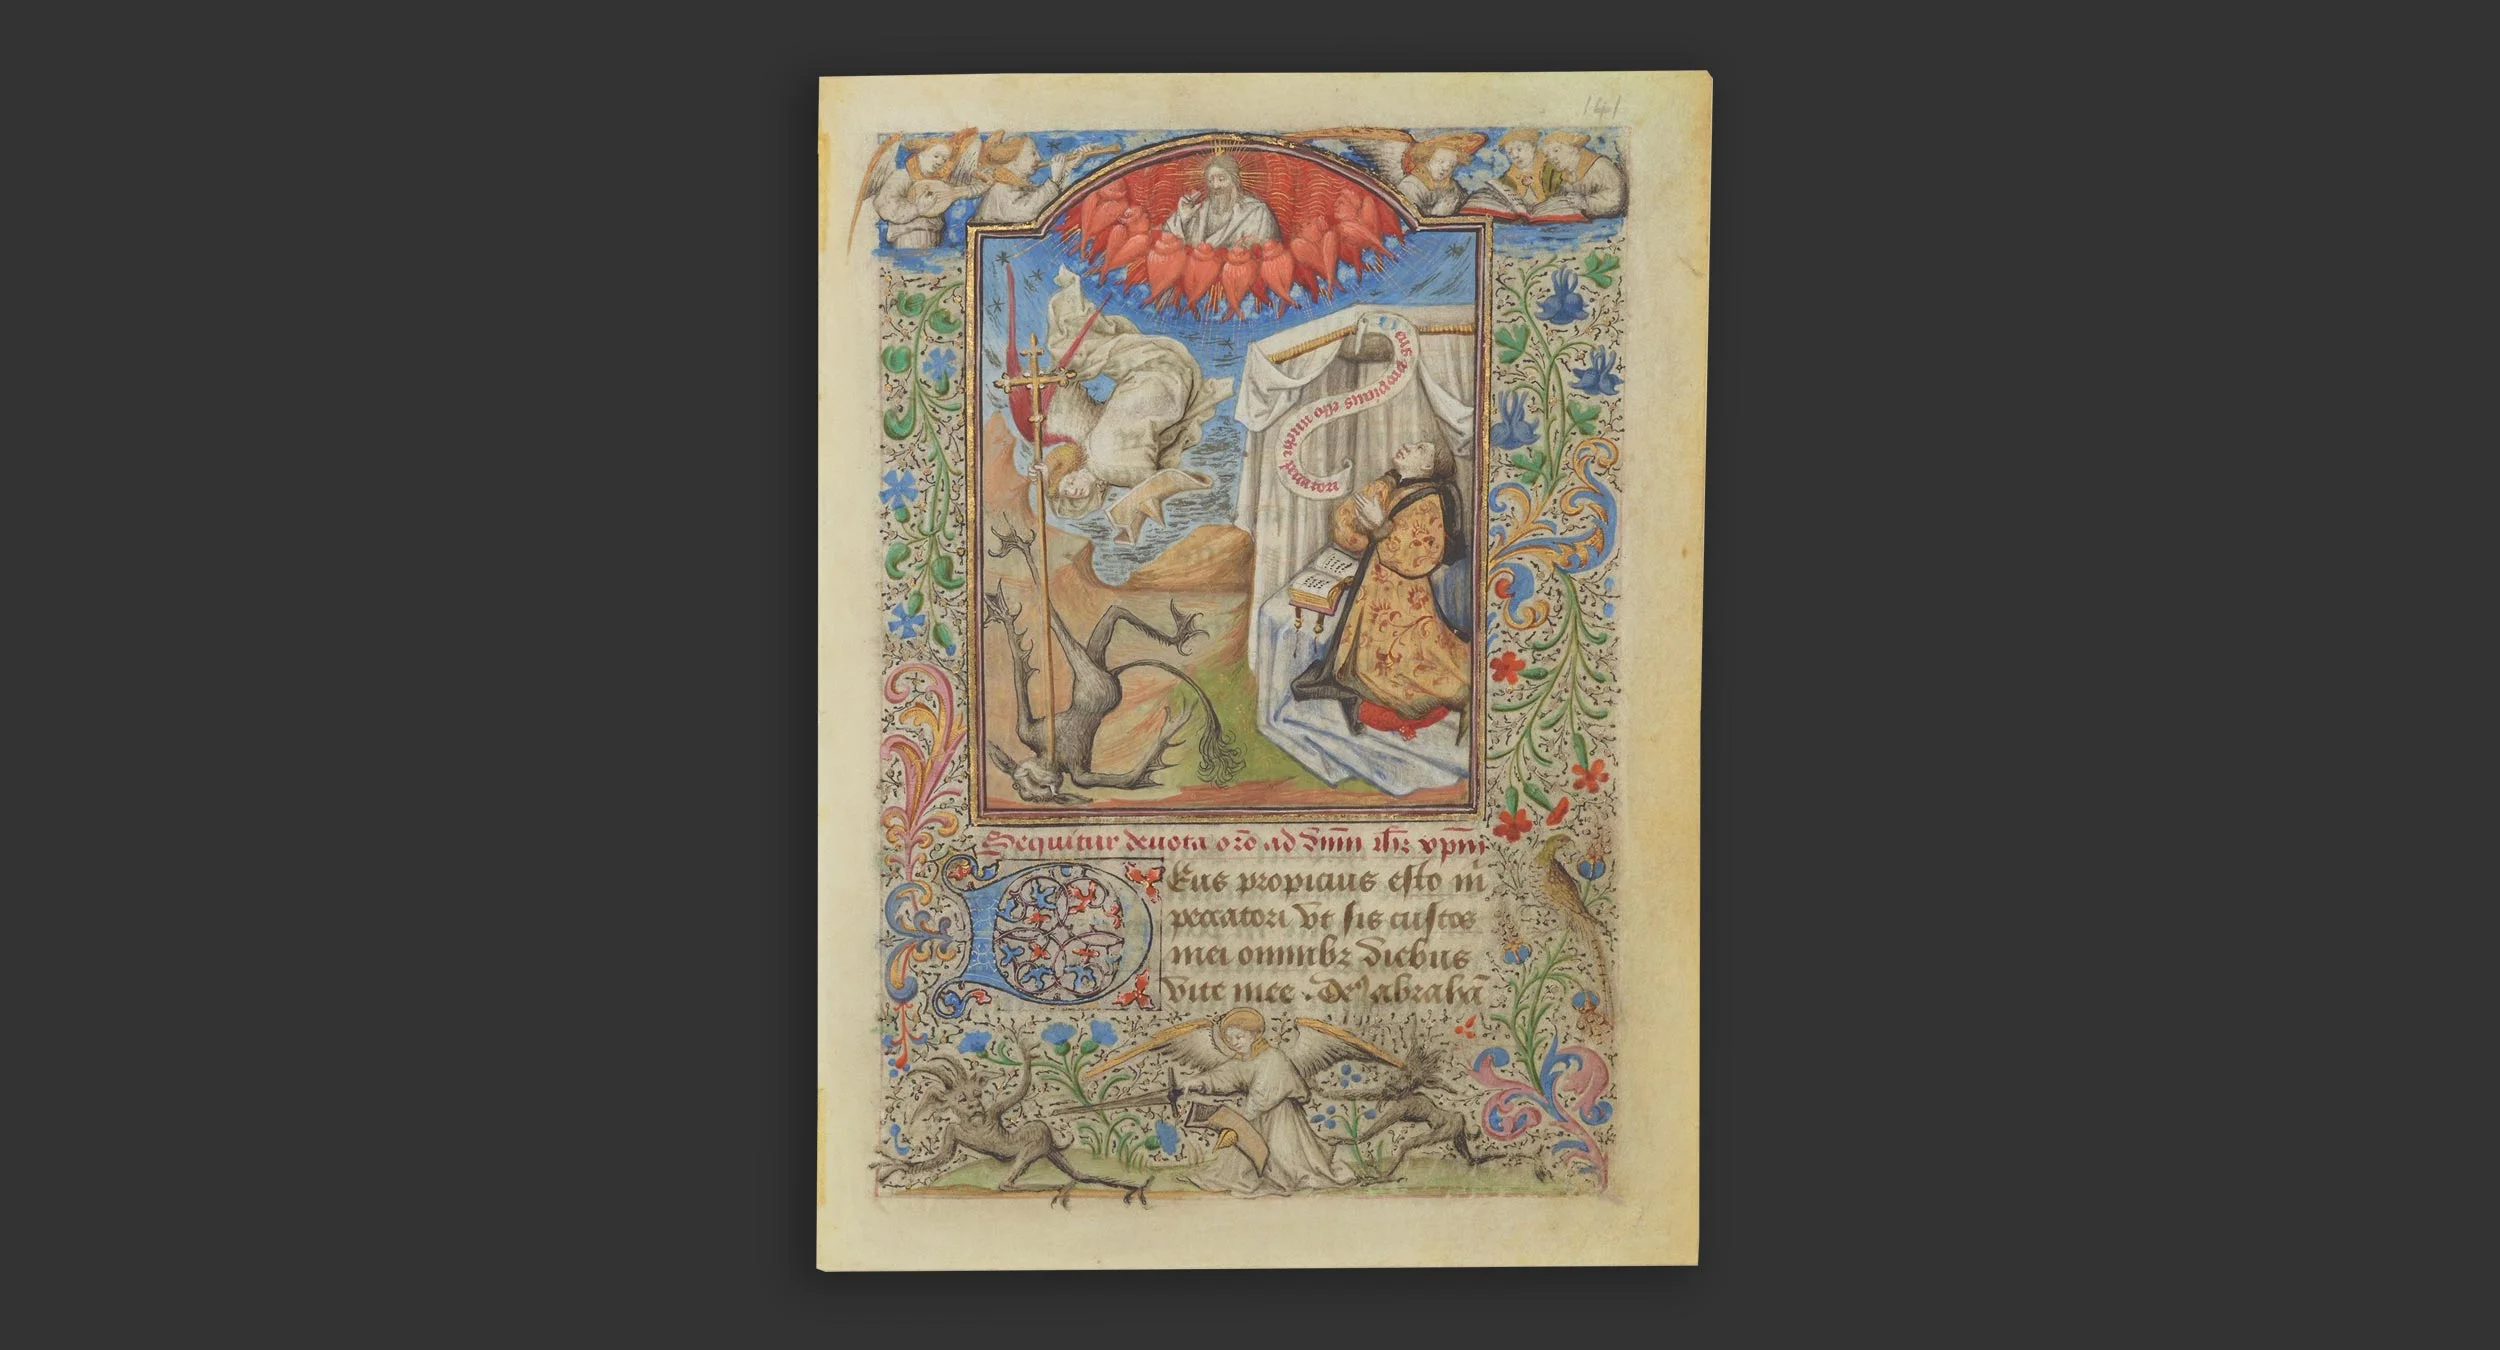 141
propicius esto michi peccatori
Sequitur deuota oro ad dnm ihm xpm
Eus propicius esto m̄
peccatori vt sis custos
mei omnibz diebus
vite mee . De9 abrahā